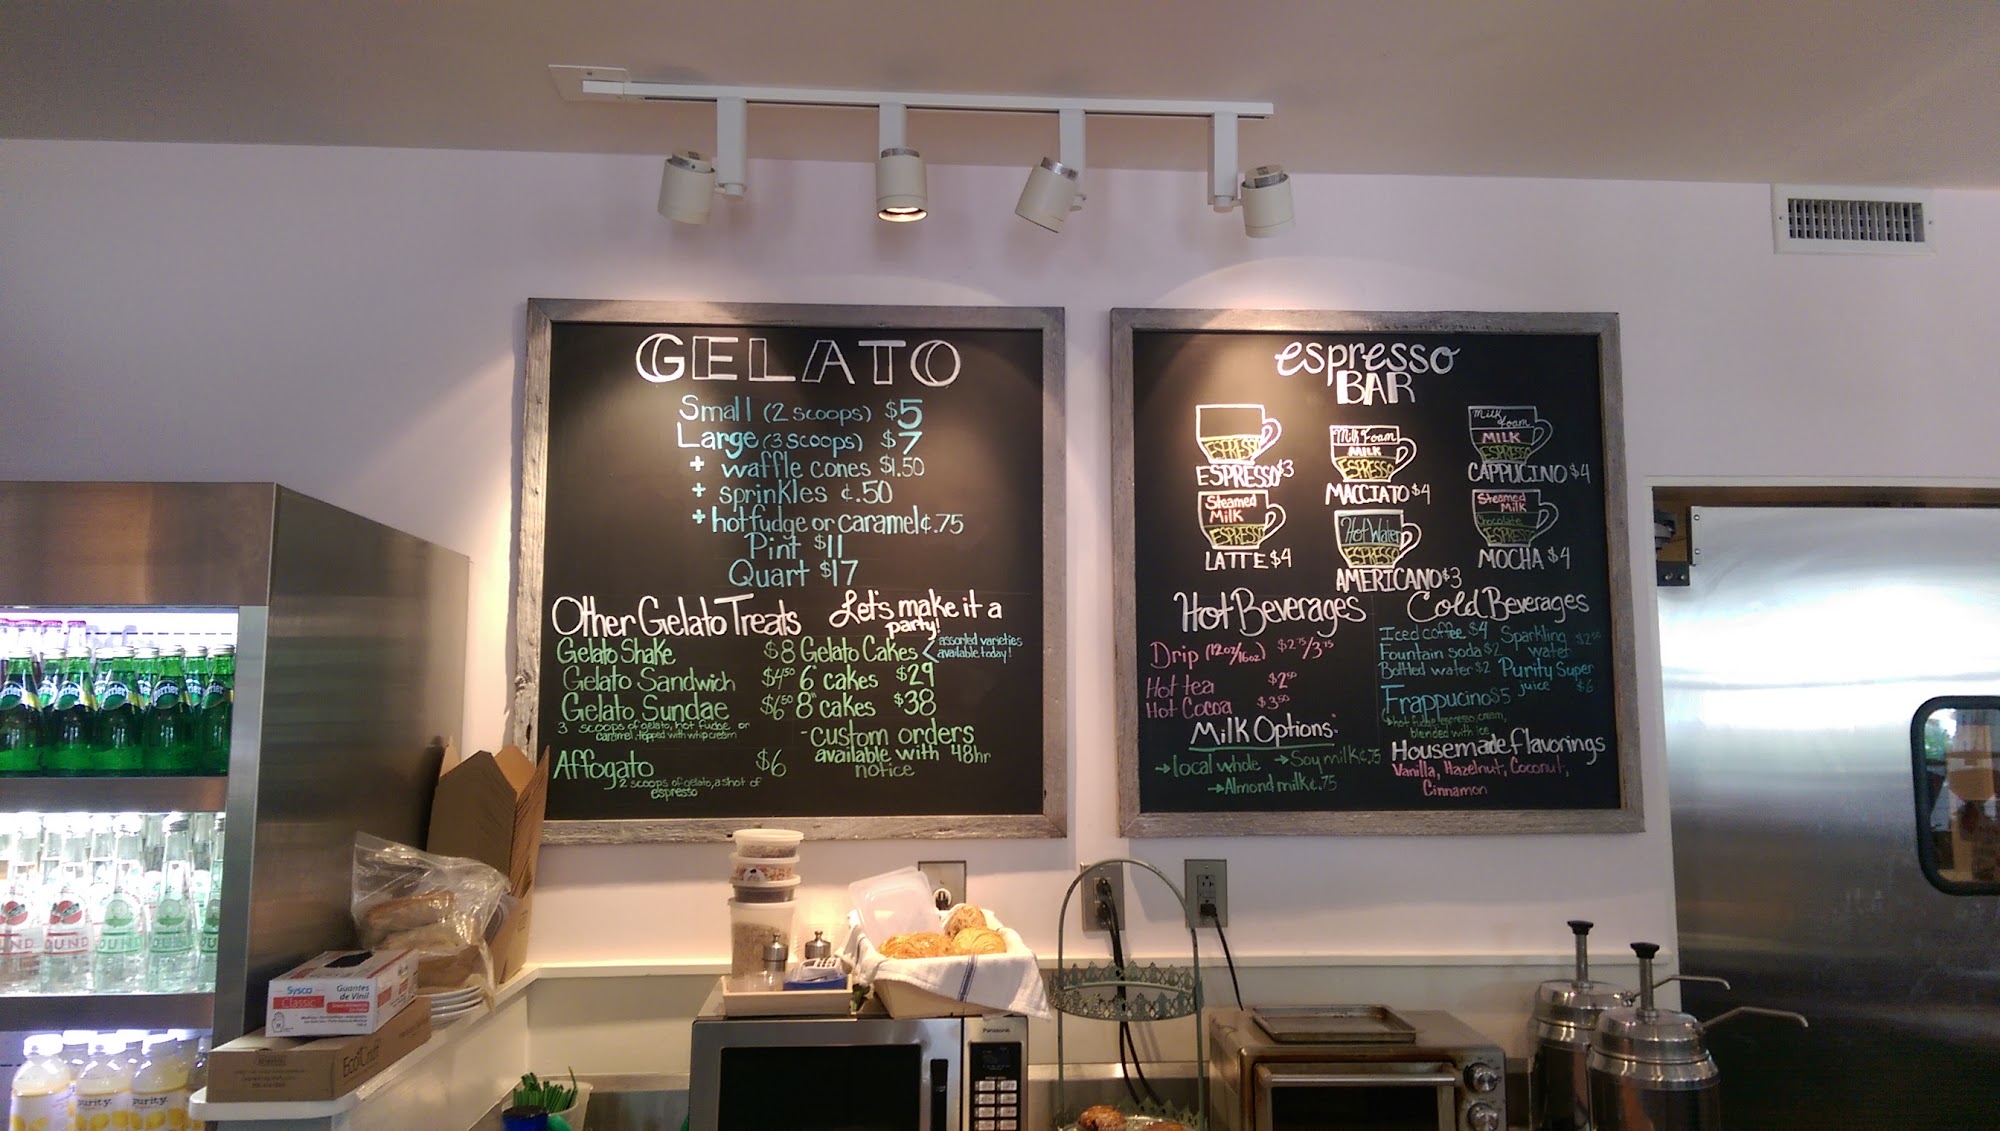 GELATO
Small (2 scoops) $5
Large (3 scoops) $7
+ waffle cones $1.50
+ sprinkles ¢.50
+ hot fudge or caramel ¢.75
Pint $11
Quart $17
Other Gelato Treats
Gelato Shake $8
Gelato Sandwich $4.50
Gelato Sundae $6.50
3 scoops of gelato, hot fudge or
caramel, topped with whip cream
Affogato $6
2 scoops of gelato, a shot of
espresso
Let's make it a
party!
Gelato Cakes
assorted varieties
available today!
6" cakes $29
8" cakes $38
-custom orders
available with 48hr
notice
espresso
BAR
ESPRESSO
ESPRESSO $3
Milk Foam
MILK
ESPRESSO
MACCIATO $4
Milk
Foam
MILK
ESPRESSO
CAPPUCINO $4
Steamed
Milk
ESPRESSO
LATTE $4
Hot Water
ESPRESSO
AMERICANO $3
Steamed
Milk
Chocolate
ESPRESSO
MOCHA $4
Hot Beverages
Drip (12oz/16oz) $2.75/3.75
Hot tea $2.50
Hot Cocoa $3.50
Milk Options:
→ local whole → Soy milk ¢.75
→ Almond milk ¢.75
Cold Beverages
Iced coffee $4
Fountain soda $2
Bottled water $2
Sparkling
water
Purity Super
juice $6
Frappucino $5
hot fudge, espresso, cream,
blended with ice
Housemade flavorings
Vanilla, Hazelnut, Coconut,
Cinnamon
Sysco
Classic
Guantes
de Vinil
EcoCraft
Panasonic
Perrier
OUND
OUND
purity.
purity.